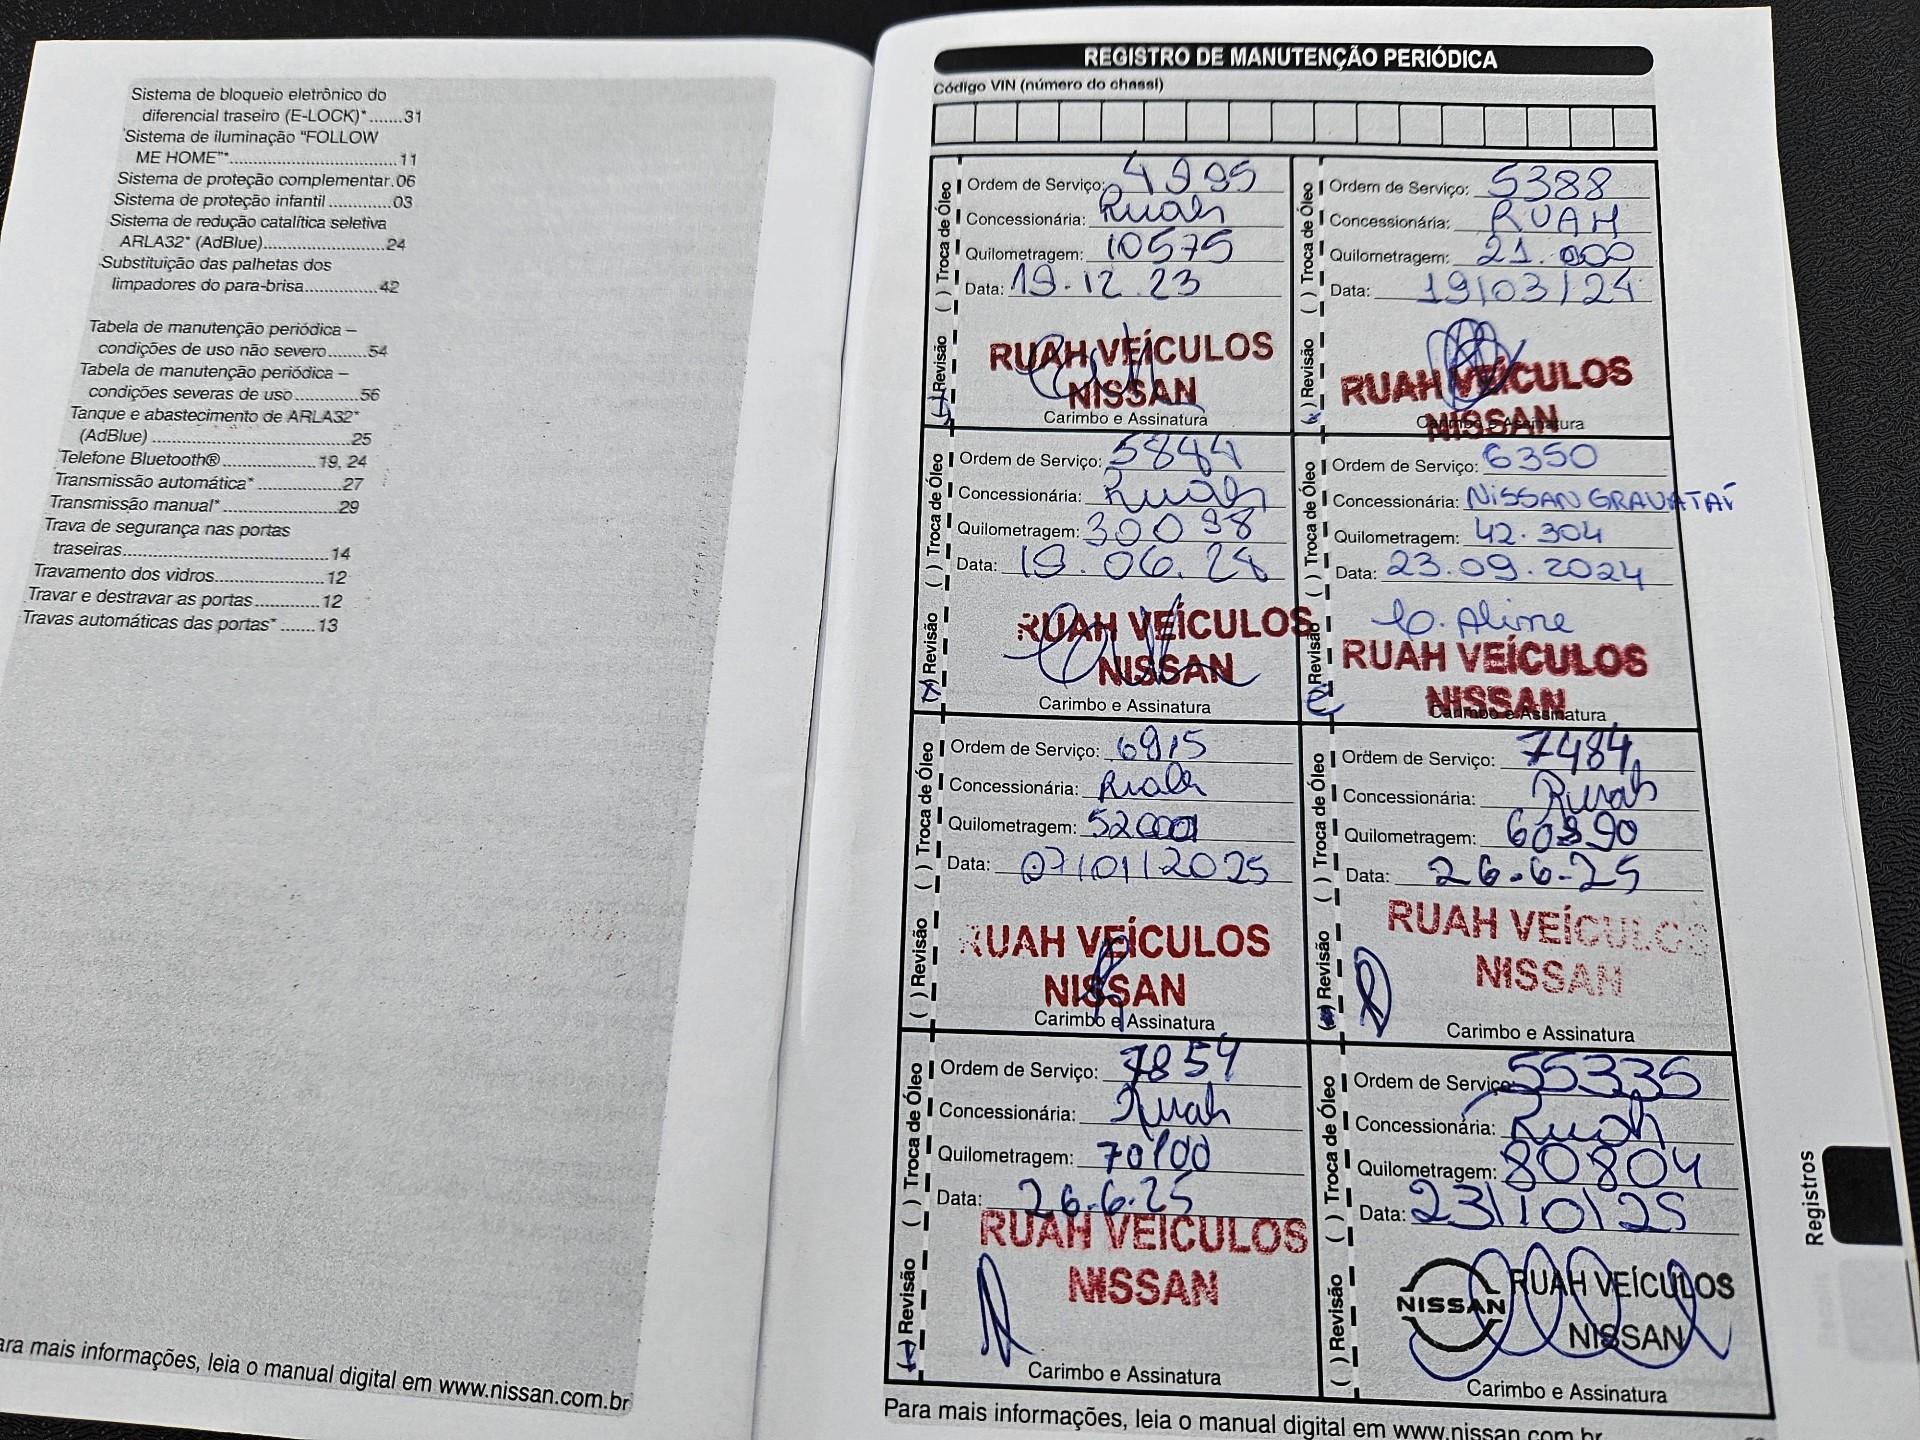 Sistema de bloqueio eletrônico do
diferencial traseiro (E-LOCK)*.......31
Sistema de iluminação "FOLLOW
ME HOME"*...............................11
Sistema de proteção complementar.06
Sistema de proteção infantil ..............03
Sistema de redução catalítica seletiva
ARLA32* (AdBlue).......................24
Substituição das palhetas dos
limpadores do para-brisa..............42
Tabela de manutenção periódica –
condições de uso não severo........54
Tabela de manutenção periódica –
condições severas de uso .............56
Tanque e abastecimento de ARLA32*
(AdBlue) .....................................25
Telefone Bluetooth® ..................19, 24
Transmissão automática* .................27
Transmissão manual* .......................29
Trava de segurança nas portas
traseiras.......................................14
Travamento dos vidros......................12
Travar e destravar as portas .............12
Travas automáticas das portas* .......13
ara mais informações, leia o manual digital em www.nissan.com.br
REGISTRO DE MANUTENÇÃO PERIÓDICA
Código VIN (número do chassi)
( ) Revisão ( ) Troca de Óleo
Ordem de Serviço: 4995
Concessionária: Ruah
Quilometragem: 10575
Data: 19.12.23
RUAH VEÍCULOS
NISSAN
Carimbo e Assinatura
(x) Revisão ( ) Troca de Óleo
Ordem de Serviço: 5388
Concessionária: RUAH
Quilometragem: 21.000
Data: 19/03/24
RUAH VEÍCULOS
NISSAN
Carimbo e Assinatura
(x) Revisão ( ) Troca de Óleo
Ordem de Serviço: 5844
Concessionária: Ruah
Quilometragem: 30098
Data: 19.06.24
RUAH VEÍCULOS
NISSAN
Carimbo e Assinatura
( ) Revisão ( ) Troca de Óleo
Ordem de Serviço: 6350
Concessionária: NISSAN GRAVATAÍ
Quilometragem: 42.304
Data: 23.09.2024
Aline
RUAH VEÍCULOS
NISSAN
Carimbo e Assinatura
( ) Revisão ( ) Troca de Óleo
Ordem de Serviço: 6915
Concessionária: Ruah
Quilometragem: 52000
Data: 07/01/2025
RUAH VEÍCULOS
NISSAN
Carimbo e Assinatura
(x) Revisão ( ) Troca de Óleo
Ordem de Serviço: 7484
Concessionária: Ruah
Quilometragem:
Data: 26.6.25
RUAH VEÍCULOS
NISSAN
Carimbo e Assinatura
( ) Revisão ( ) Troca de Óleo
Ordem de Serviço: 7854
Concessionária: Ruah
Quilometragem: 70100
Data: 26.6.25
RUAH VEÍCULOS
NISSAN
Carimbo e Assinatura
( ) Revisão ( ) Troca de Óleo
Ordem de Serviço: 55335
Concessionária: Ruah
Quilometragem: 80804
Data: 23/10/25
NISSAN
RUAH VEÍCULOS
NISSAN
Carimbo e Assinatura
Registros
Para mais informações, leia o manual digital em www.nissan.com.br